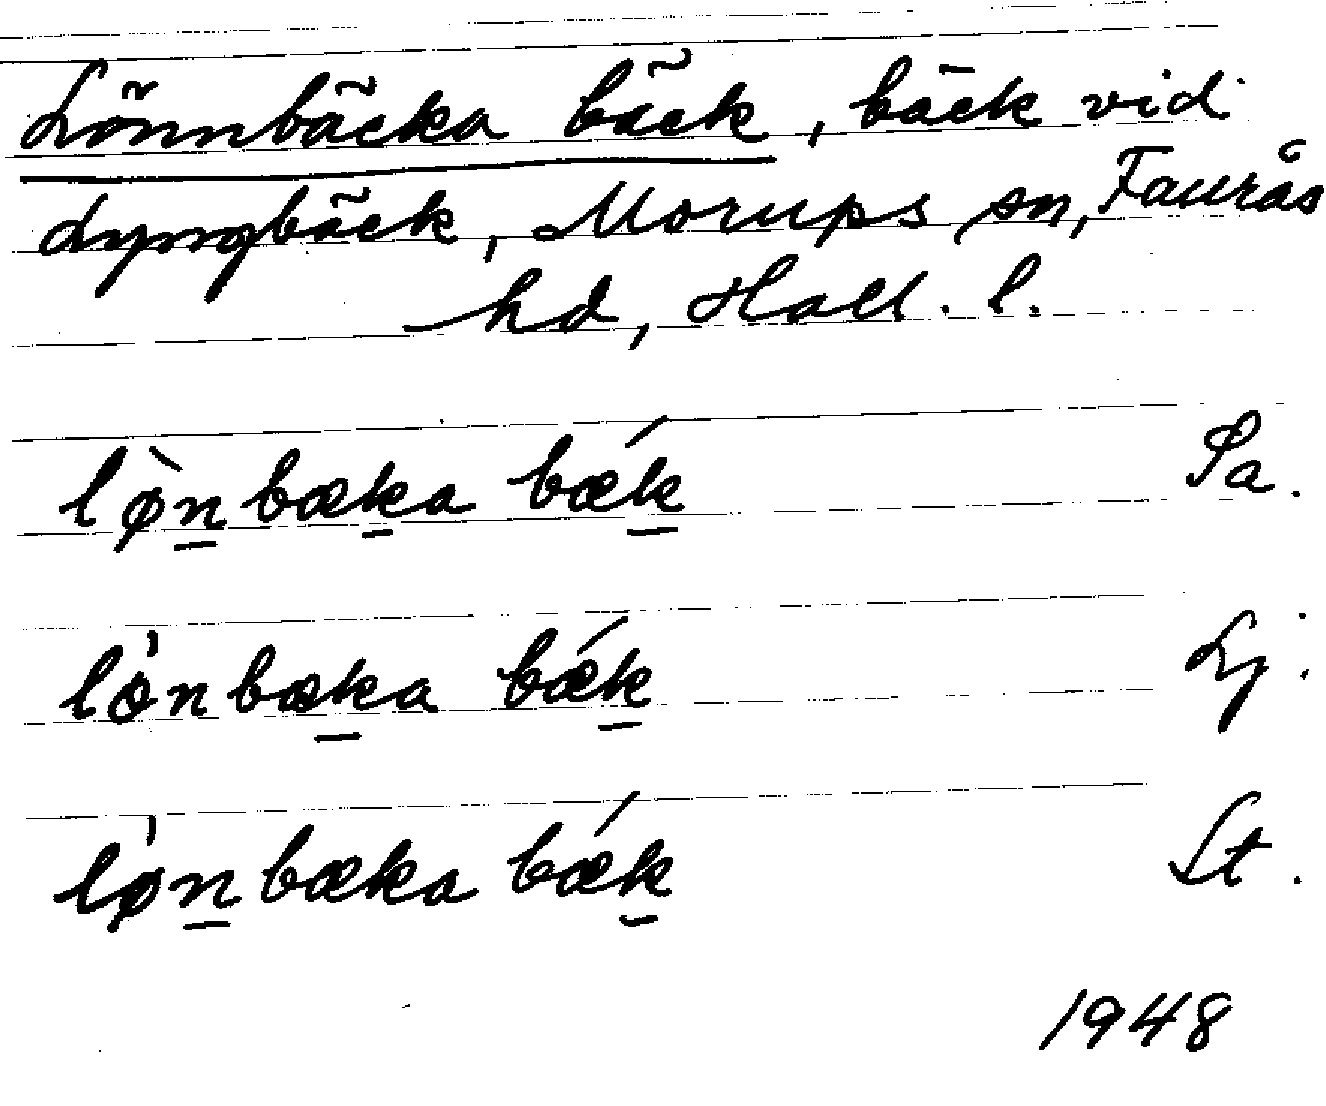 Lönnbäcka bäck, bäck vid
Lyngbäck, Morups sn, Faurås
hd, Hall. l.
lø̀n̲bæk̲a bǽk̲ Sa.
lòn bæk̲a bǽk̲ Lj.
lø̀n̲bæka bǽk̲ St.
1948